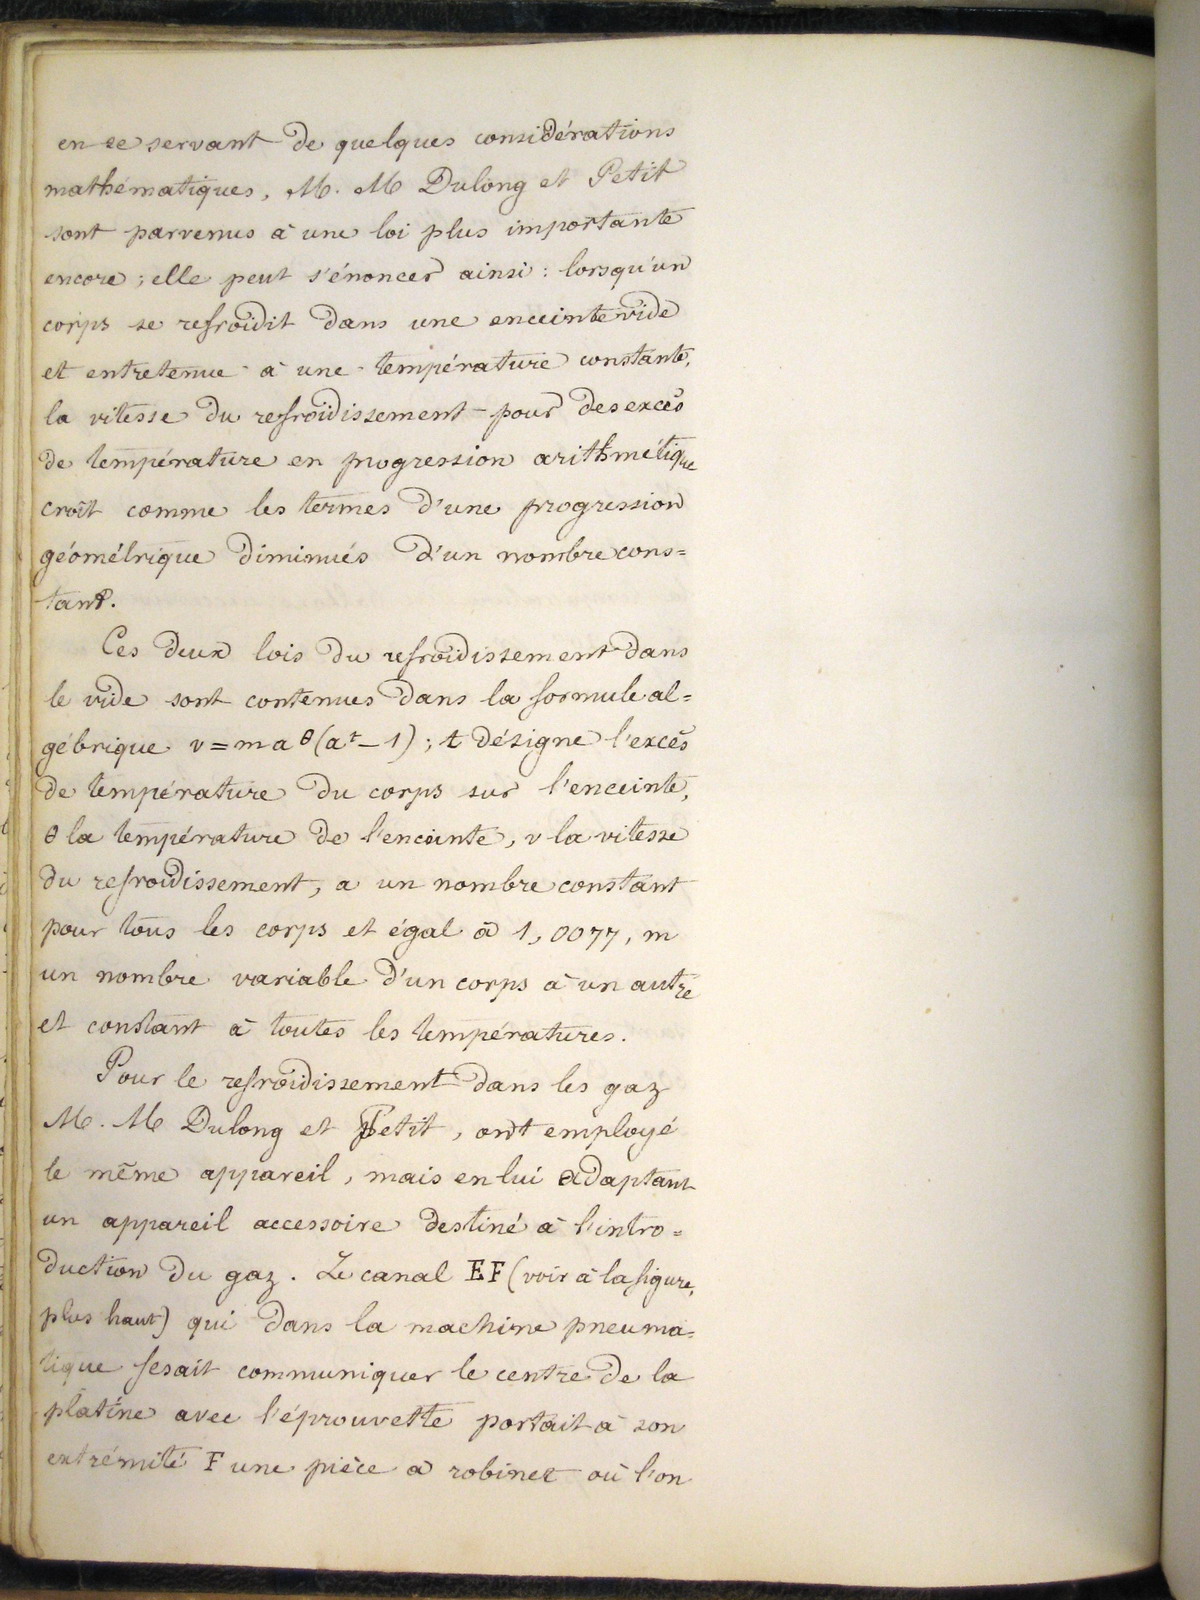 en se servant de quelques considérations
mathématiques, M. M Dulong et Petit
sont parvenus à une loi plus importante
encore ; elle peut s'énoncer ainsi : lorsqu'un
corps se refroidit dans une enceinte vide
et entretenue à une température constante,
la vitesse du refroidissement pour des excès
de température en progression arithmétique
croît comme les termes d'une progression
géométrique diminués d'un nombre cons=
tant.
Ces deux lois du refroidissement dans
le vide sont contenues dans la formule al=
gébrique v = m a θ (aᵗ - 1) ; t désigne l'excès
de température du corps sur l'enceinte,
θ la température de l'enceinte, v la vitesse
du refroidissement, a un nombre constant
pour tous les corps et égal à 1,0077, m
un nombre variable d'un corps à un autre
et constant à toutes les températures.
Pour le refroidissement dans les gaz
M. M Dulong et Petit, ont employé
le même appareil, mais en lui adaptant
un appareil accessoire destiné à l'intro=
duction du gaz. Le canal EF (voir à la figure,
plus haut) qui dans la machine pneuma=
tique fesait communiquer le centre de la
platine avec l'éprouvette portait à son
extrémité F une pièce à robinet où l'on